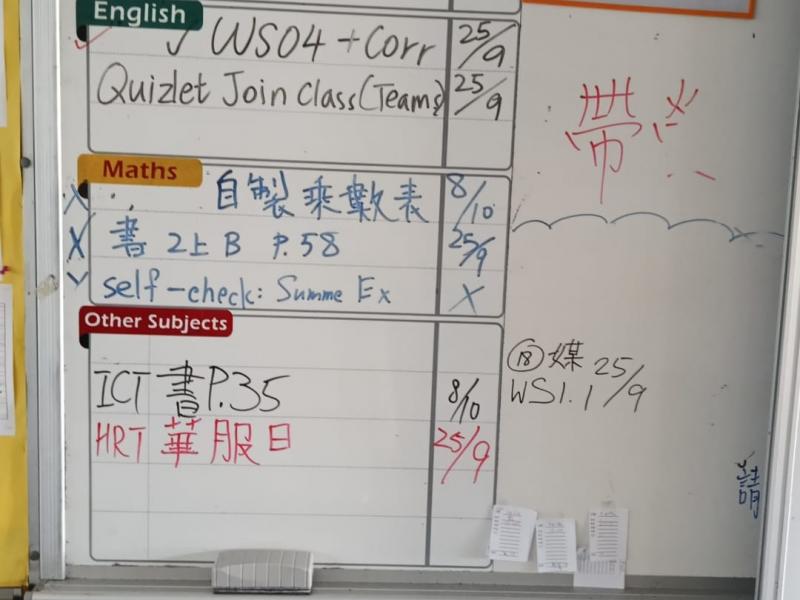 English
WS04 + Corr 25/9
Quizlet Join Class (Teams) 25/9
Maths
自製乘數表 8/10
書 2上B P.58 25/9
self-check: Summe Ex X
Other Subjects
ICT 書 P.35 8/10
HRT 華服日 25/9
帶
⑱ 媒 25/9
WS1.1
請